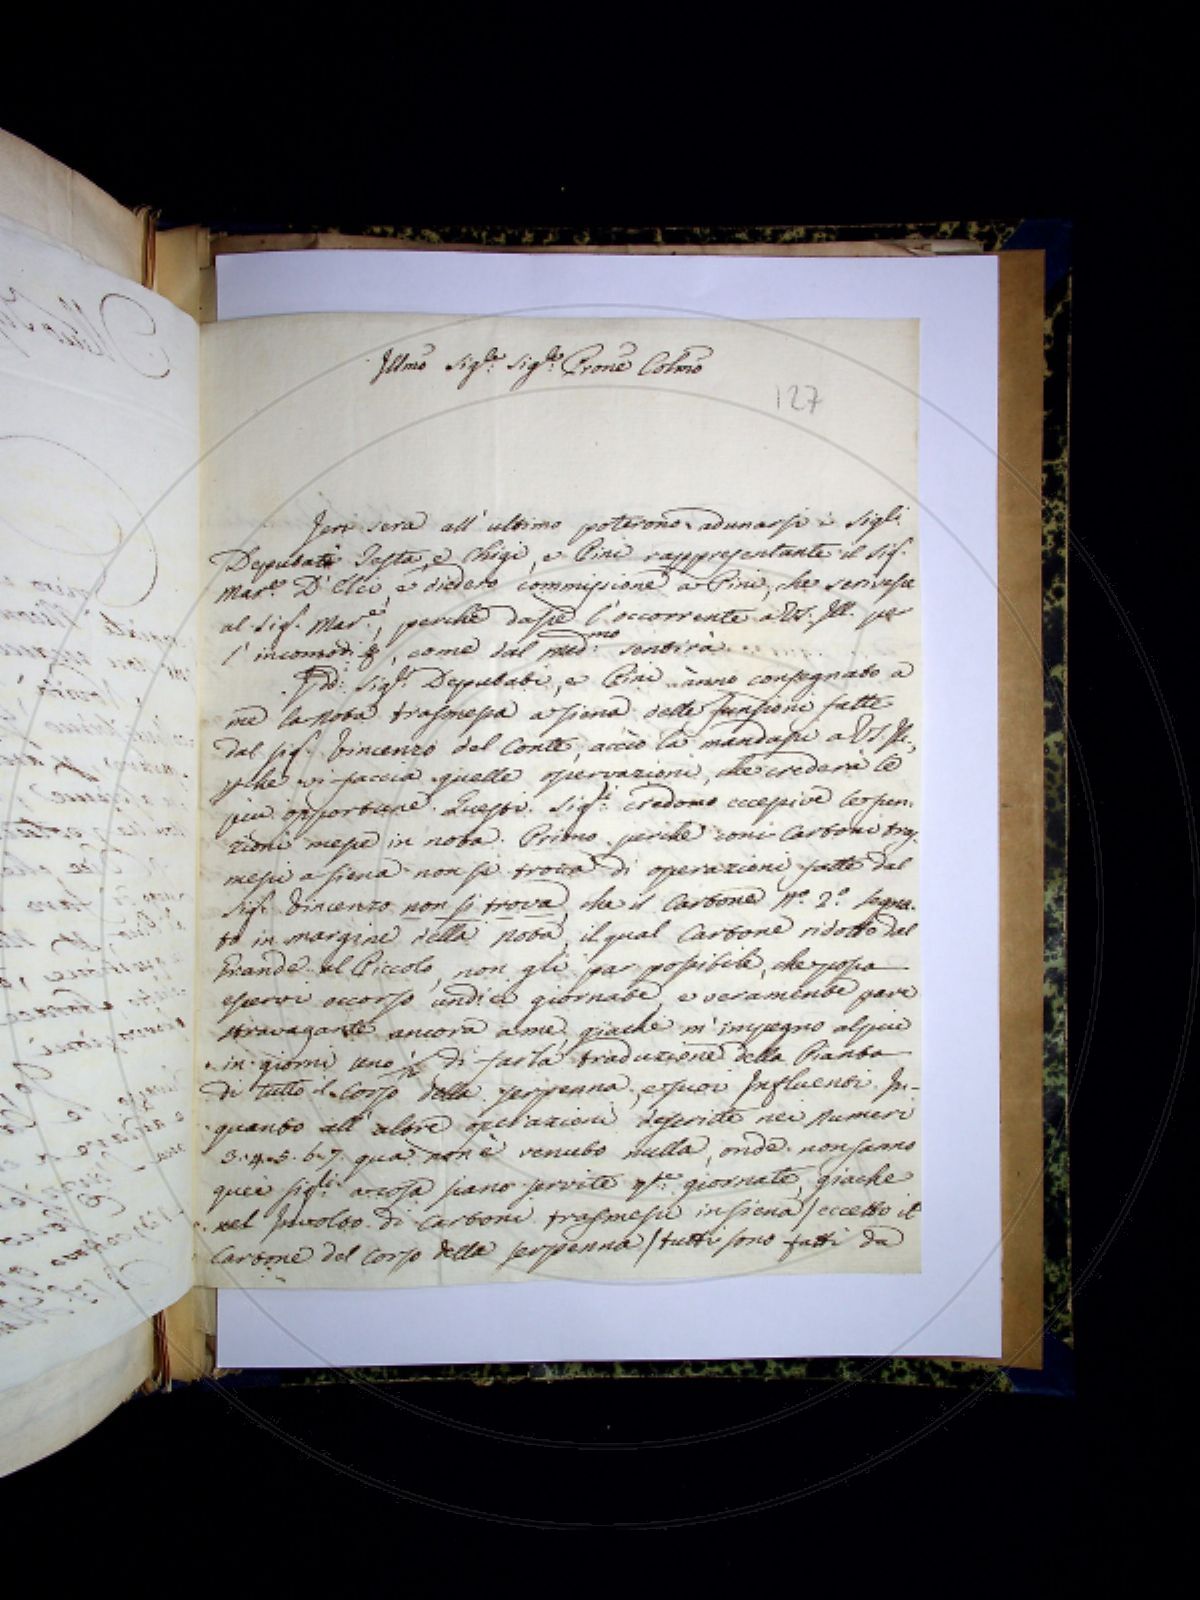 Illmo Sigre. Sigre. Prone Colmo
127
Jeri sera all'ultimo poterono adunarsi i Sigli.
Deputati Testa, e Chigi, e Pini rappresentante il Sig.
Mare. D'Elci, e diedero commissione a Pini, che scrivesse
al Sig. Mare., perche dasse l'occorrente a VS. Ill. per
l'incomodi, come dal medmo. sentirà.
Sigri. Deputati, e Pini ànno consegnato a
me la nota trasmessa a Siena delle funzioni fatte
dal Sig. Vincenzo del Conte, acciò la mandassi a VS. Ill.,
che vi faccia quelle osservazioni, che crederà le
più opportune. Questi Sigri. credono eccepive le
zioni messe in nota. Primo perche Carboni tras-
messi a Siena non si trova di operazioni fatte dal
Sig. Vincenzo non si trova, che il Carbone No. 2o. segna-
to in margine della nota, il qual Carbone ridotto dal
Grande al Piccolo, non gli par possibile, che possa
esservi occorso undici giornate, e veramente pare
stravagante ancora a me, giachè m'impegno al più
in giorni uno e 1/2 di farla traduzione della Pianta
di tutto il Corso della Serpenna, e suoi Influenti. In-
quanto all'altre operazioni descritte nei numeri
3. 4. 5. 6. 7. quà non è venuto nulla, onde non sanno
quei Sigri. a cosa siano servite giornate, giache
nel Involto di Carboni trasmessi in Siena / eccetto il
Carbone del Corso della Serpenna / tutti sono fatti da